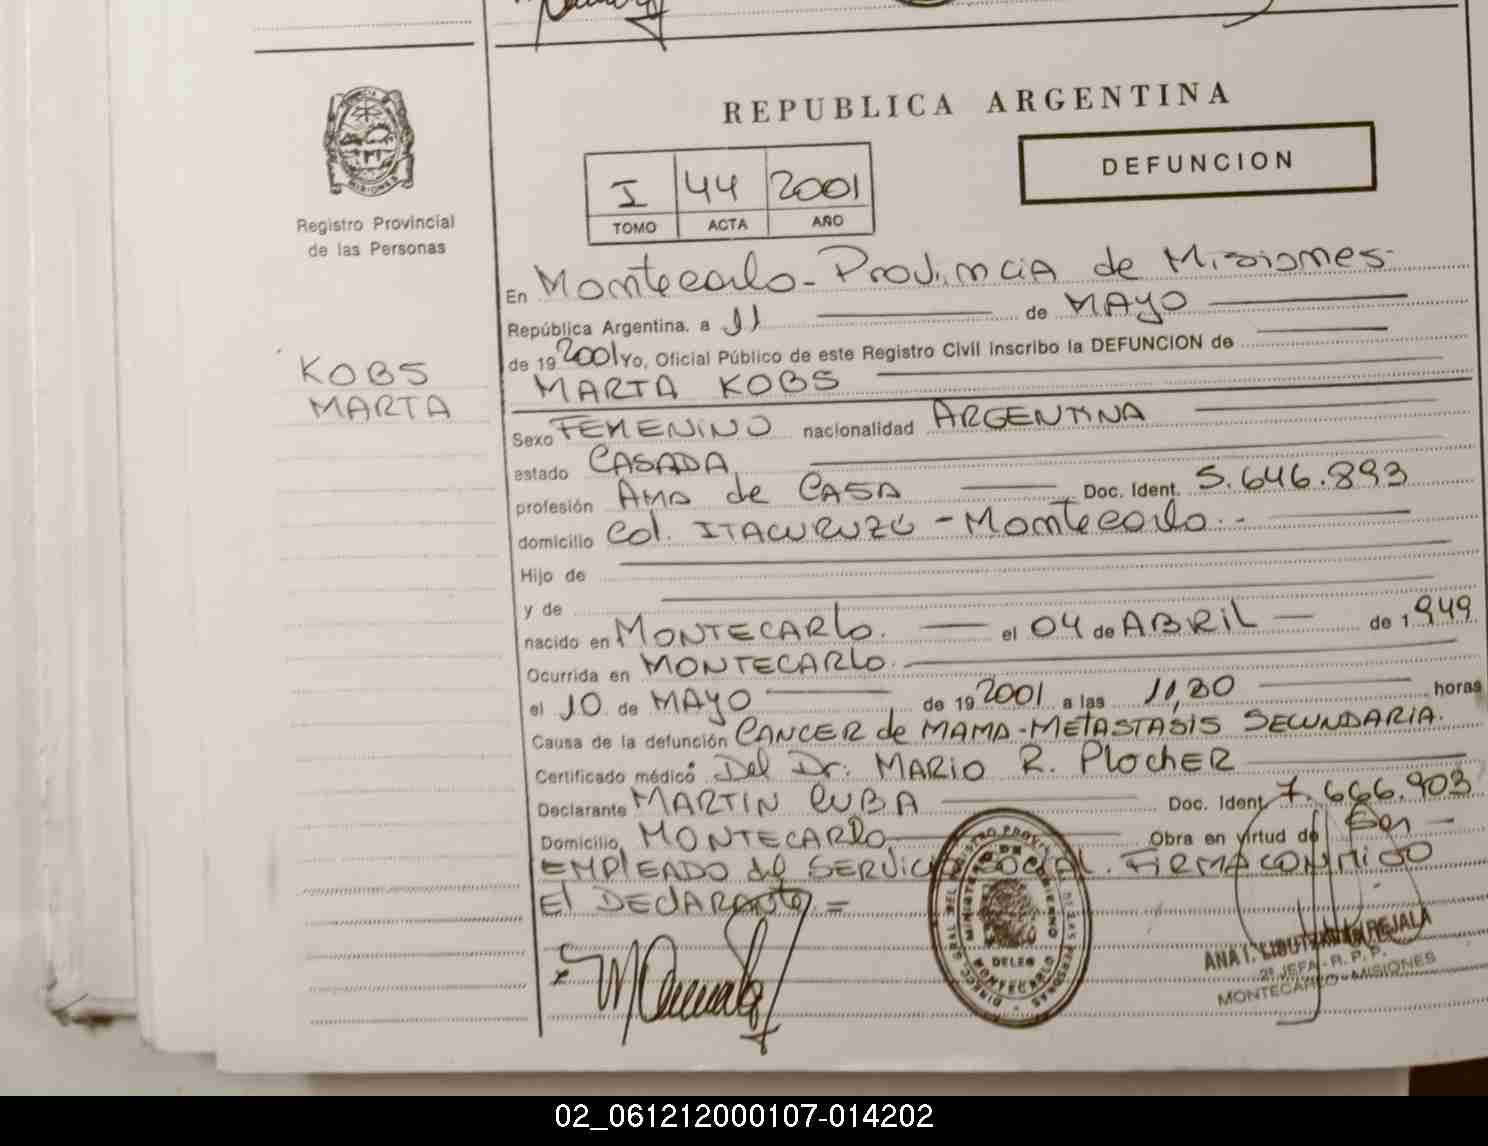 REPUBLICA ARGENTINA
DEFUNCION
I 44 2001
TOMO ACTA AÑO
MISIONES
Registro Provincial
de las Personas
KOBS
MARTA
En Montecarlo - Provincia de Misiones.
República Argentina, a 11 de MAYO
de 19 2001 Yo, Oficial Público de este Registro Civil inscribo la DEFUNCION de
MARTA KOBS
Sexo FEMENINO nacionalidad ARGENTINA
estado CASADA
profesión AMA de CASA Doc. Ident. 5.646.893
domicilio Col. ITACURUZÚ - Montecarlo.-
Hijo de
y de
nacido en MONTECARLO. el 04 de ABRIL de 1.949
Ocurrida en MONTECARLO.
el 10 de MAYO de 19 2001 a las 11,30 horas
Causa de la defunción CANCER de MAMA - METASTASIS SECUNDARIA.
Certificado médico Del Dr. MARIO R. PlochER
Declarante MARTIN CUBA Doc. Ident. 7.666.903
Domicilio MONTECARLO Obra en virtud de Ser
EMPLEADO del SERVICIO SOCIAL. FIRMA CONMIGO
El DECLARANTE =
MINISTERIO DE GOBIERNO
DELEG
MONTECARLO
ANA I.
2ª JEFA - R. P. P.
MONTECARLO - MISIONES
02_061212000107-014202